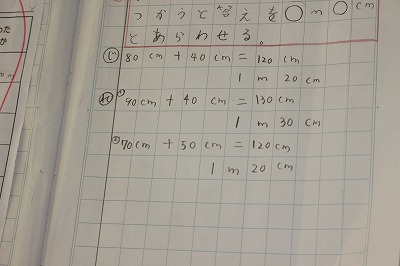 つかうと答えを○m○cm
とあらわせる。
じ 80cm+40cm=120cm
1m20cm
れ ① 90cm+40cm=130cm
1m30cm
② 70cm+50cm=120cm
1m20cm